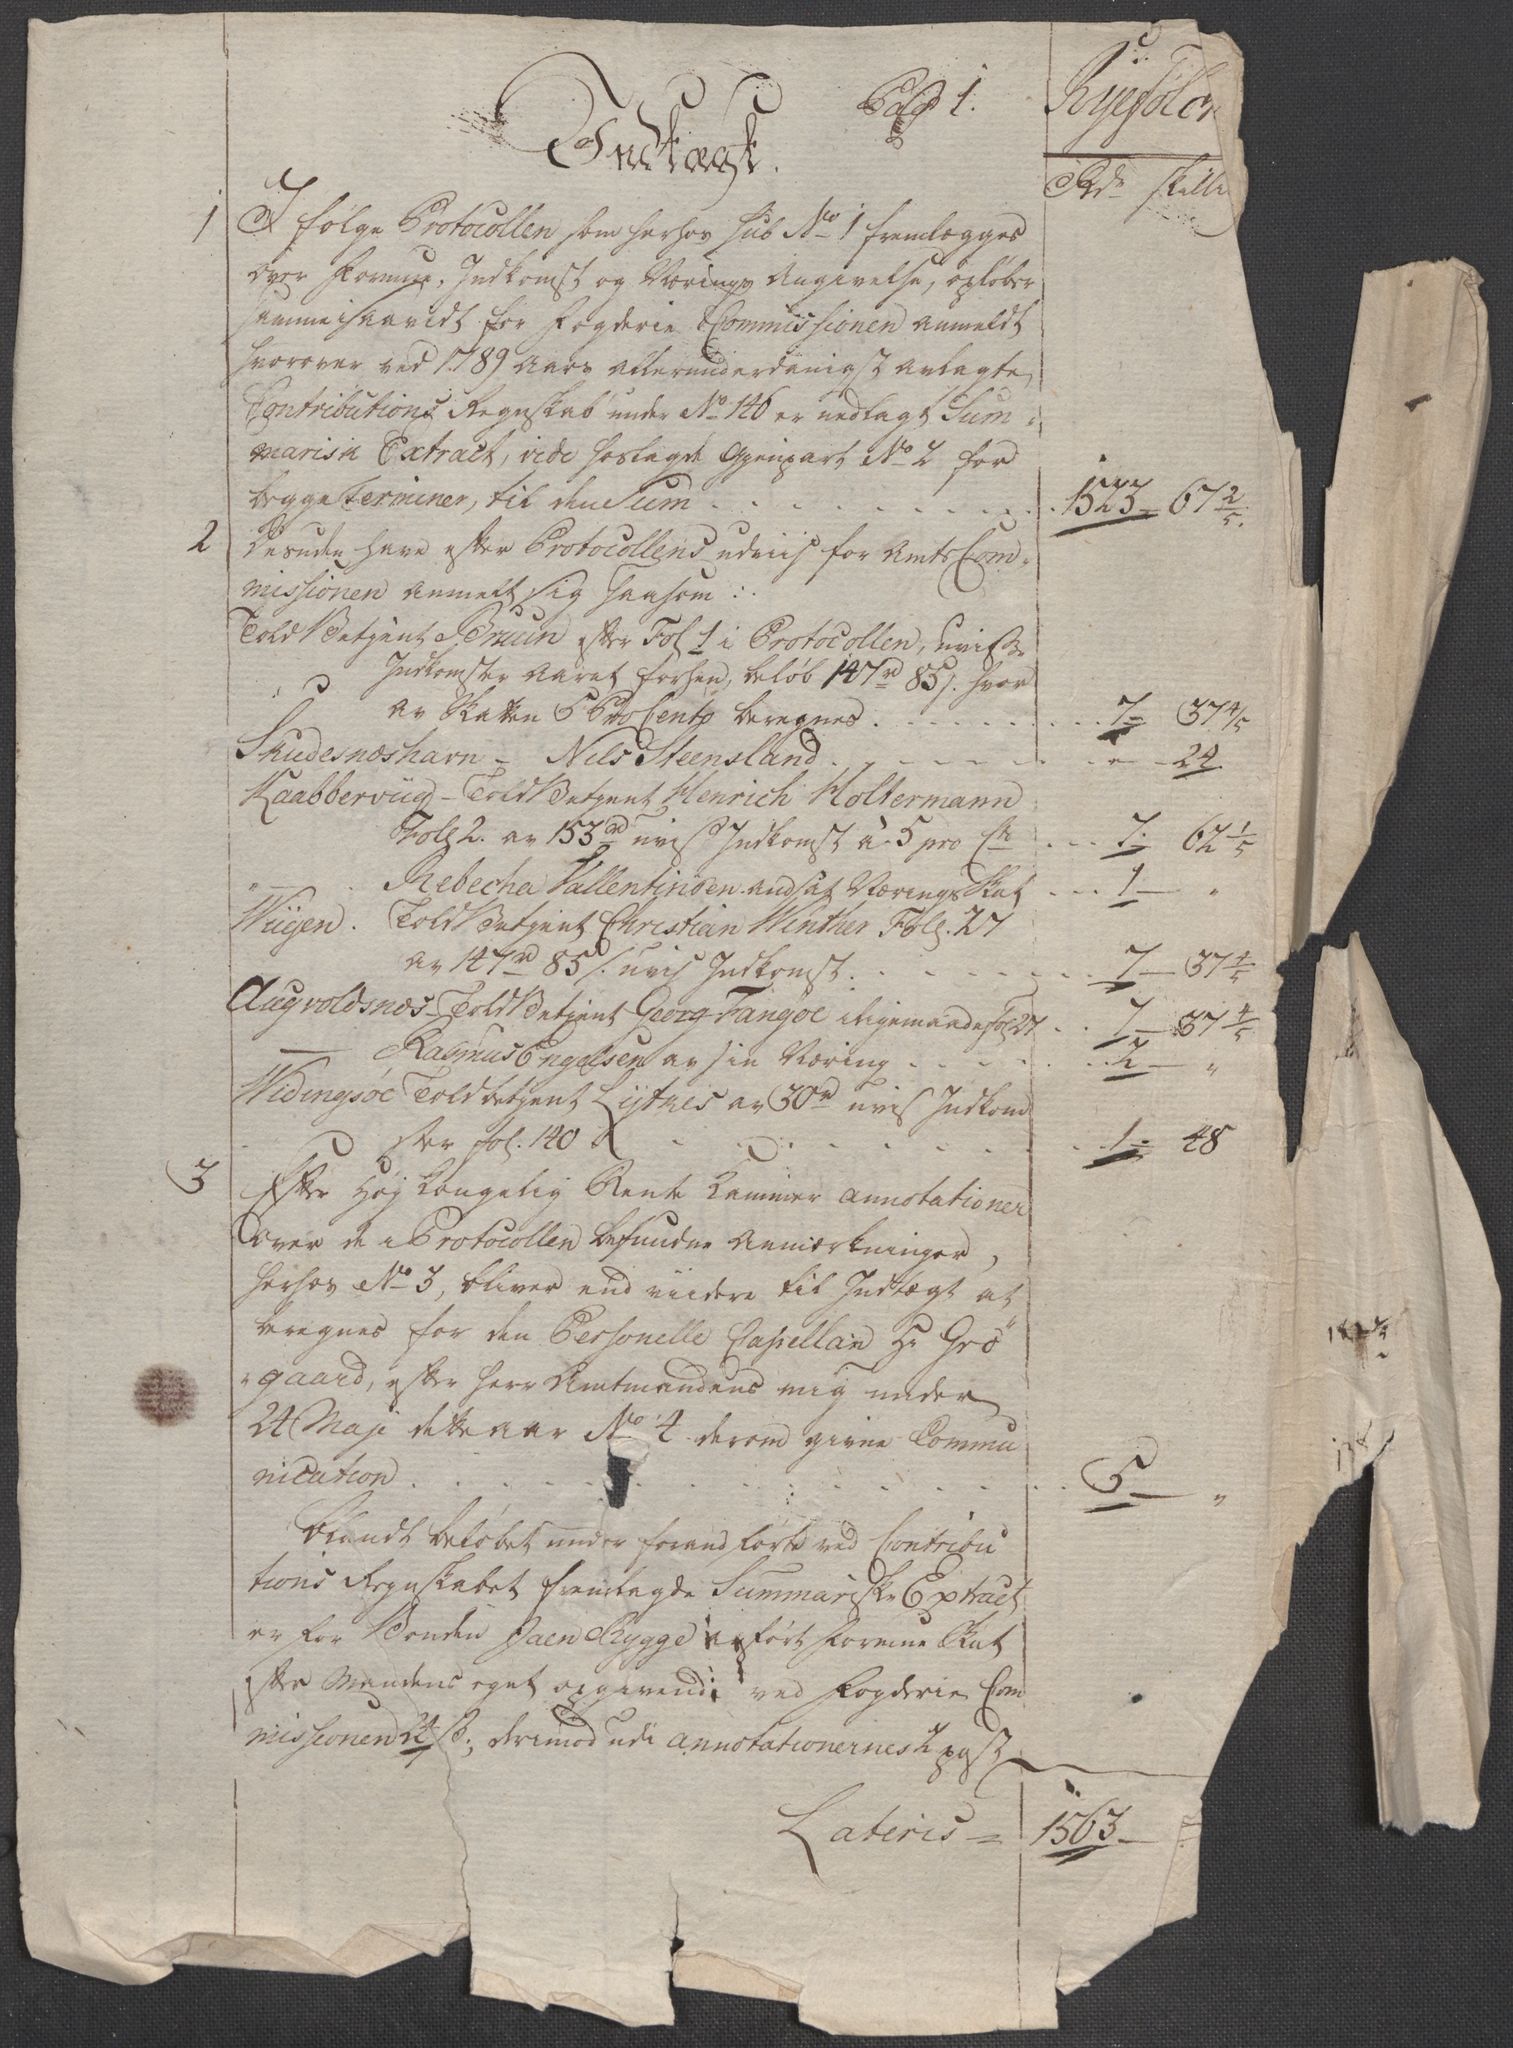 Pag 1.
Ryefölcke
Indtægt.
Rdr skill
1 I følge Protocollen som herhos sub No 1 fremlægges
over Formue, Indkomst og Nærings Angivelse, opløber
samme isaavidt for Fogderie Commissionen anmeldt
hvorover ved 1789 Aars allerunderdanigst avlagte
Contributions Regnskab under No 146 er nedlagt Sum-
marisk Extract, vide hoslagde Gienpart No 2 for
begge Terminer, til den Sum . . . 1523 — 67 2/5.
2 Desuden have efter Protocollens udviis for Amts Com-
missionen anmelt sig saasom :
Told Betjent Bruun efter Fol 1 i Protocollen, uvisse
Indkomster Aaret forhen, beløb 147 rd 85 s. hvor
av Skatten 5 ProCento beregnes . . . 7 — 37 4/5
Skudesnæshavn - Nils Steensland . . . " — 24
Kaabberviig - Told Betjent Henrich Holtermann
Fol 2. av 153 rd uvis Indkomst à 5 pro Ct . . . 7 — 62 1/5
" — Rebecha Vallentinsen andsat Nærings Skat . . . 1 — "
Wiigen. Told Betjent Christian Winther Fol. 27
av 147 rd 85 s. uvis Indkomst . . . 7 — 37 4/5
Augvoldsnæs - Told Betjent Georg Fangøe iligemaade Fol 27 . . 7 — 37 4/5
— Rasmus Engelsen av sin Næring . . . 2 — "
Widingsøe Told betjent Lytkes av 30 rd uvis Indkom
ster fol. 140 . . . 1 — 48
3 Efter Høj Kongelig Rente Kammer annotationer
over de i Protocollen befundne Anmærkninger,
herhos No 3, bliver end viidere til Indtægt at
beregnes for den Personelle Capellan Hr Grö-
gaard, efter Herr Amtmandens mig under
24 Maji dette aar No 4 derom givne Commu
nication . . . 5 — "
Blandt beløbet under foranførte ved Contribu
tions Regnskabet fremlagde Summariske Extract
er for Bonden Jaen Rygge anført Formue Skat
efter Mandens eget opgivende ved Fogderie Com
missionen 24 s.; derimod udi annotationernes 2 post
Lateris = 1563 —